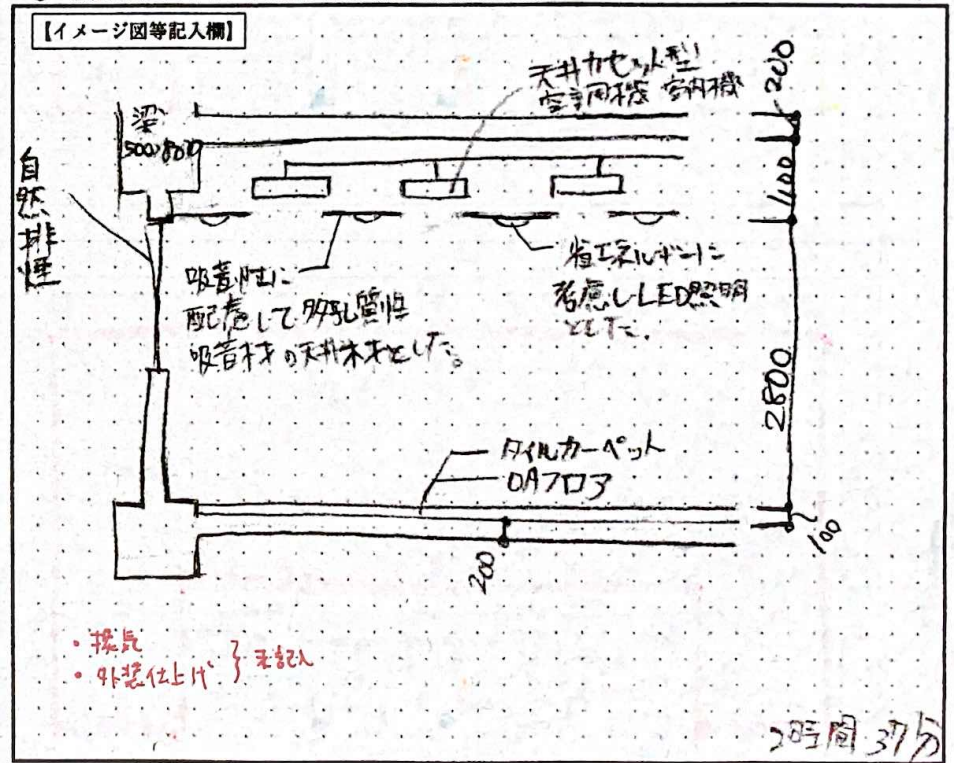 【イメージ図等記入欄】
天井カセット型
空調機 室内機
200
梁
500×800
1100
自然排煙
吸着性に
配慮して多孔質性
吸着材の天井材とした。
省エネルギーに
考慮しLED照明
とした。
2800
タイルカーペット
OAフロア
100
200
・換気
・外装仕上げ } 未記入
2時間37分